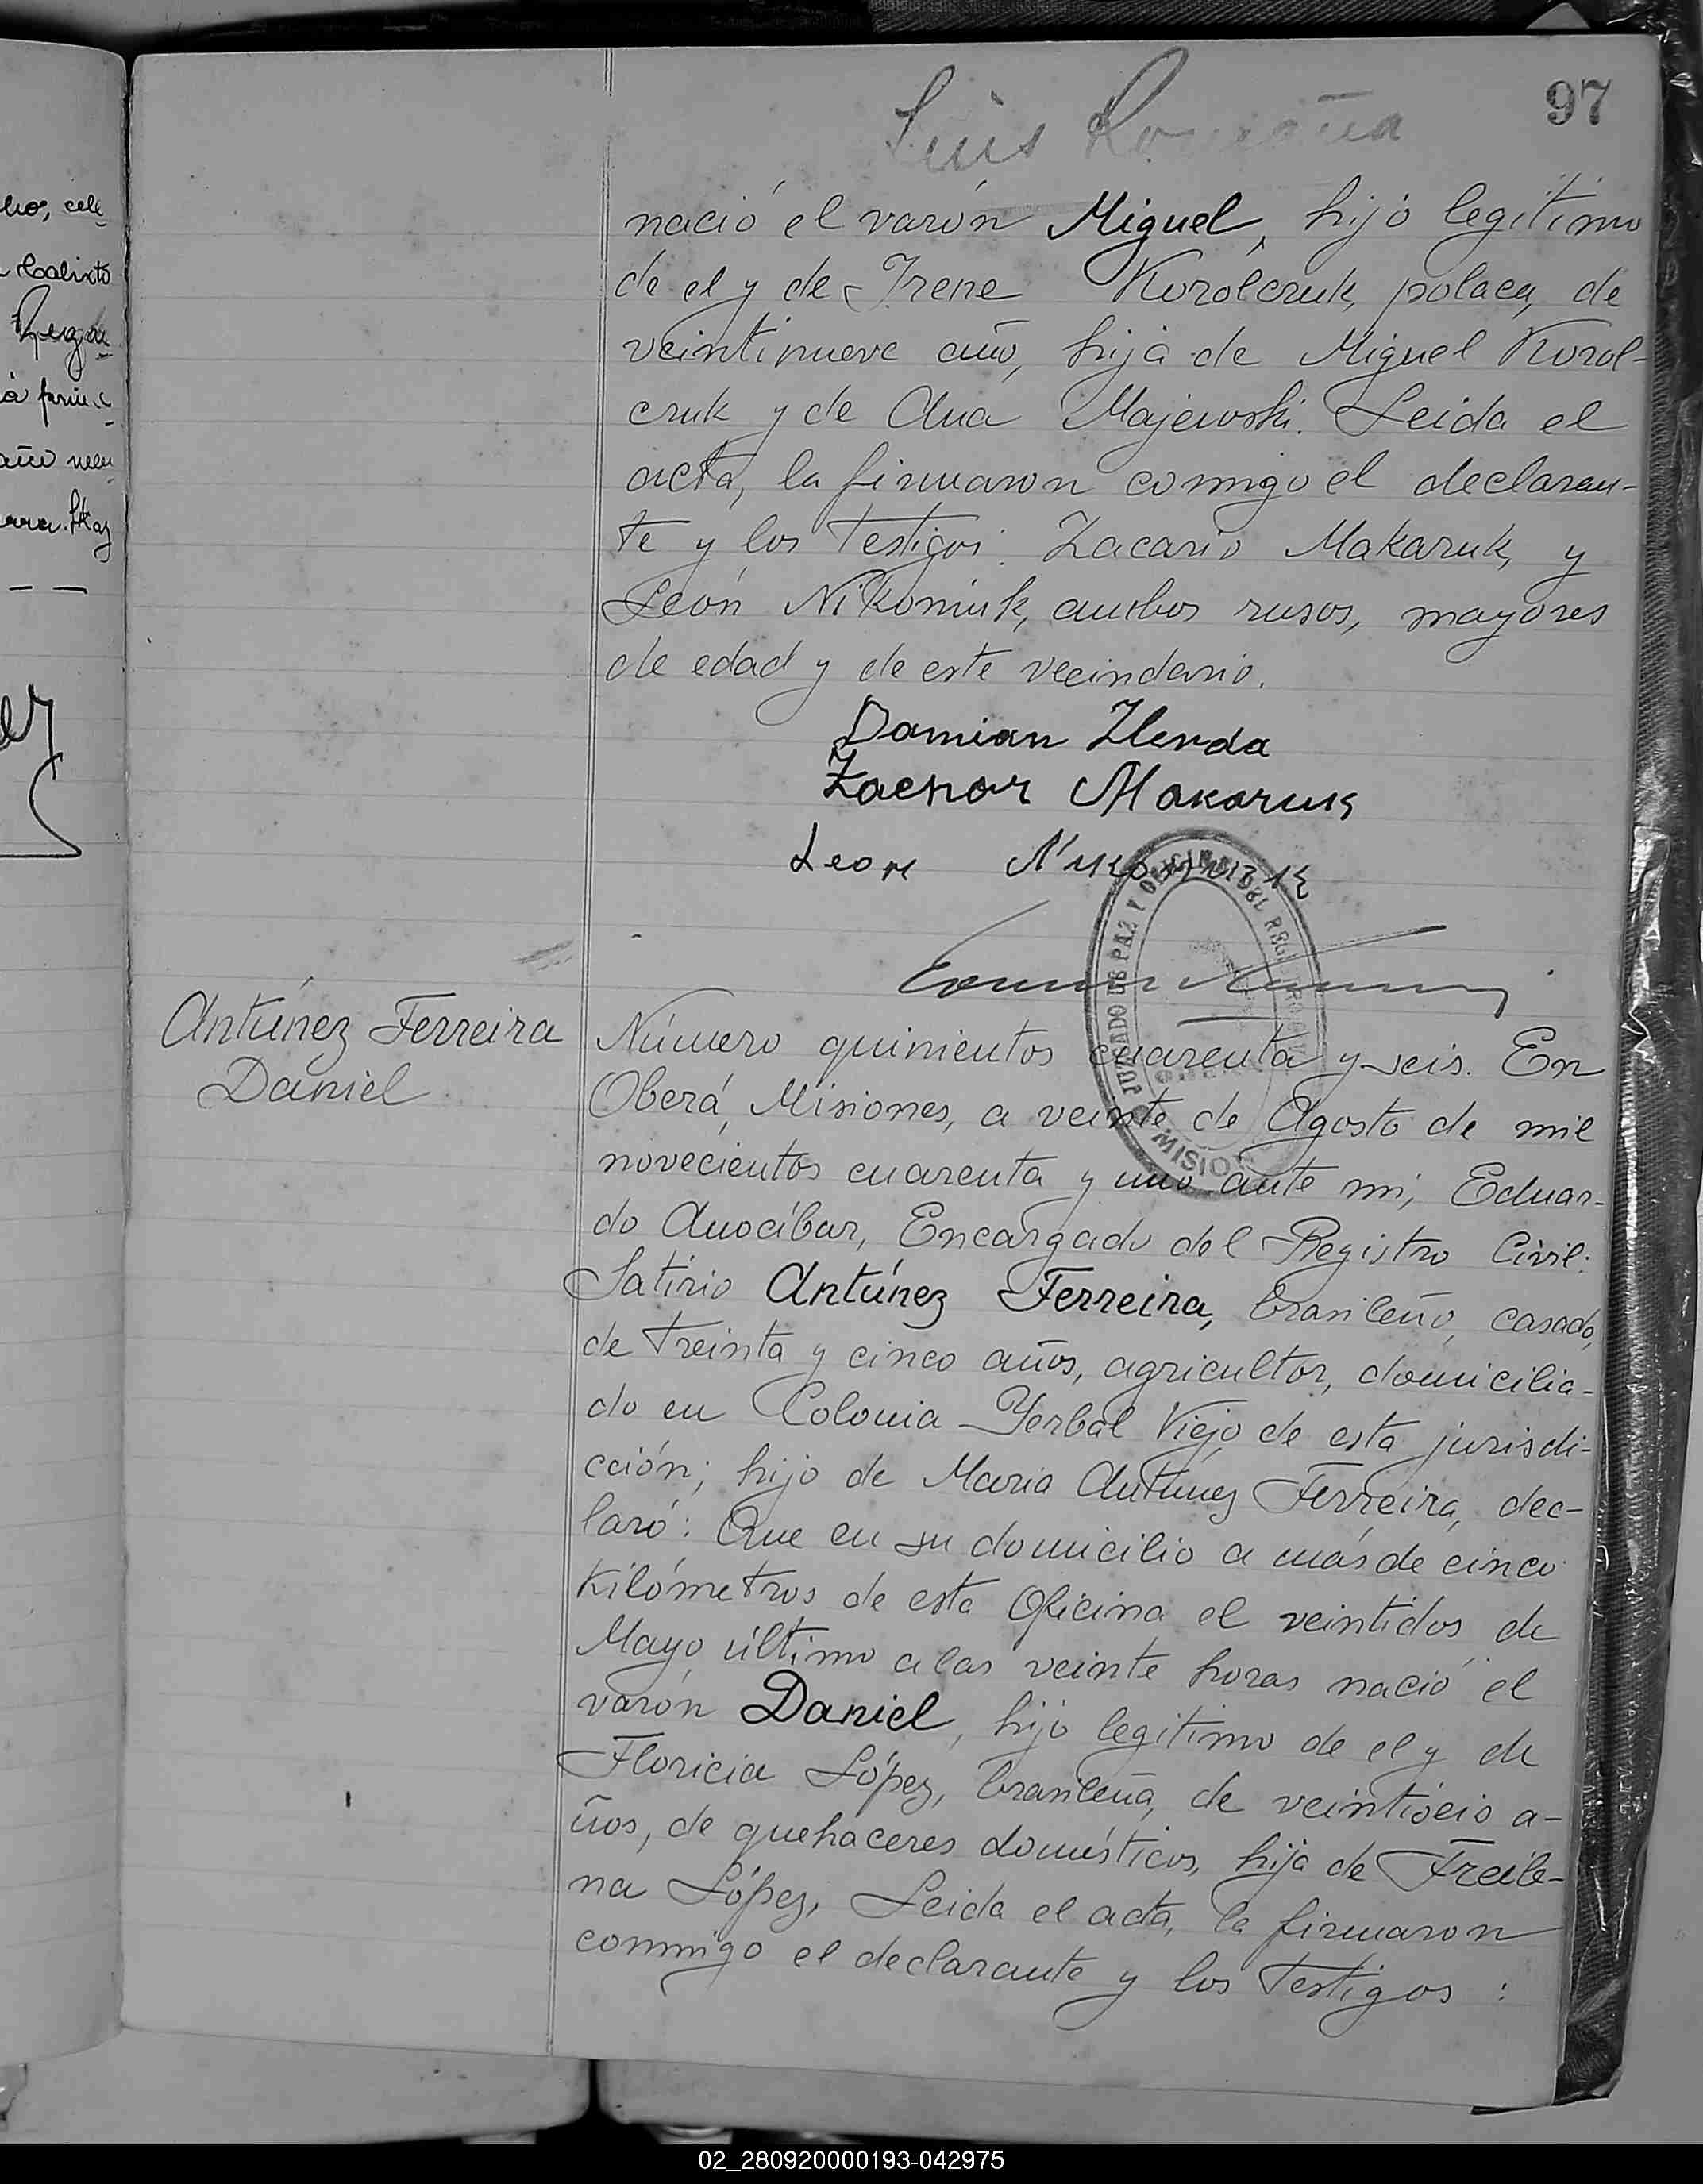 97
Luis
nació el varón Miguel, hijo legítimo
de el y de Irene Korolcruk, polaca, de
veintinueve año, hija de Miguel Korol-
cruk y de Ana Majewski. Leida el
acta, la firmaron conmigo el declaran-
te y los testigos: Zacario Makaruk, y
León Nikoniuk, ambos rusos, mayores
de edad y de este vecindario.
Damian
Makaruk
Leon
JUZGADO DE PAZ Y OFICINA DEL REG
MISIO
Antúnez Ferreira
Daniel
Número quinientos cuarenta y seis. En
Oberá, Misiones, a veinte de Agosto de mil
novecientos cuarenta y uno ante mi, Eduar-
do Anocíbar, Encargado del Registro Civil:
Satirio Antúnez Ferreira, brasileño, casado,
de treinta y cinco años, agricultor, domicilia-
do en Colonia Yerbal Viejo de esta jurisdi-
cción; hijo de Maria Antunez Ferreira, dec-
laró: Que en su domicilio a más de cinco
kilómetros de esta Oficina el veintidos de
Mayo último a las veinte horas nació el
varón Daniel, hijo legitimo de el y de
Floricia López, brasileña, de veintiseis a-
ños, de quehaceres domésticos, hija de Freile-
na López, Leida el acta, la firmaron
conmigo el declarante y los testigos:
ho, cele
Calixto
año
02_280920000193-042975